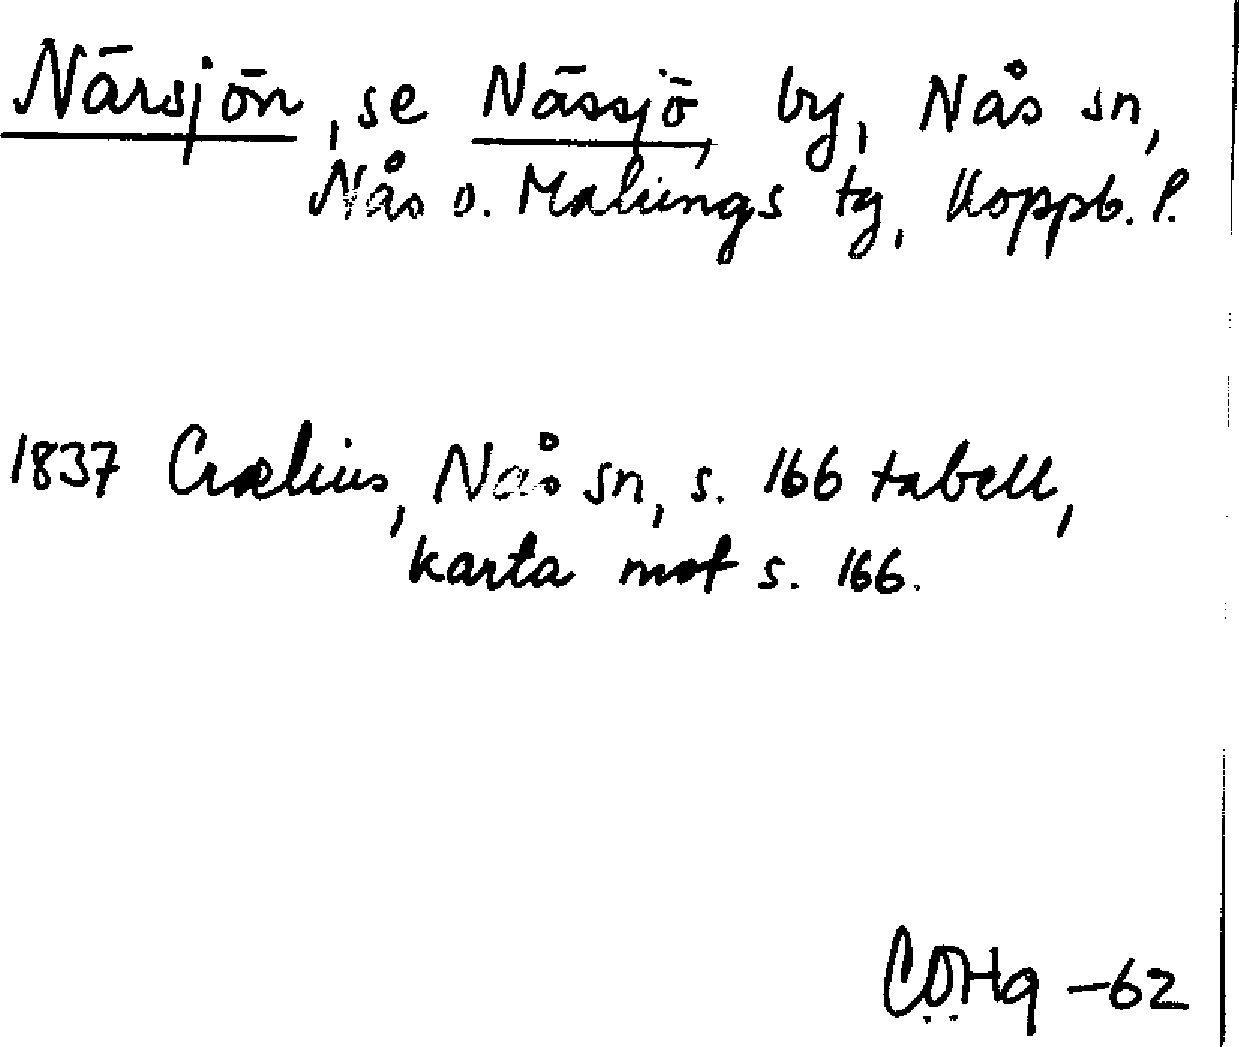 Närsjön, se Nässjö, by, Nås sn,
Nås o. Malungs tg, Koppb. l.
1837 Crælius, Nås sn, s. 166 tabell,
karta mot s. 166.
-62